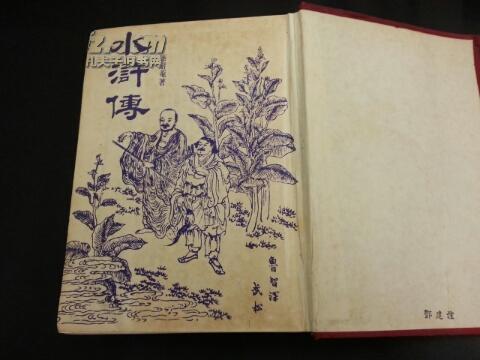 水滸傳
孔夫子旧书网
施耐庵著
魯智深
武松
鄧建